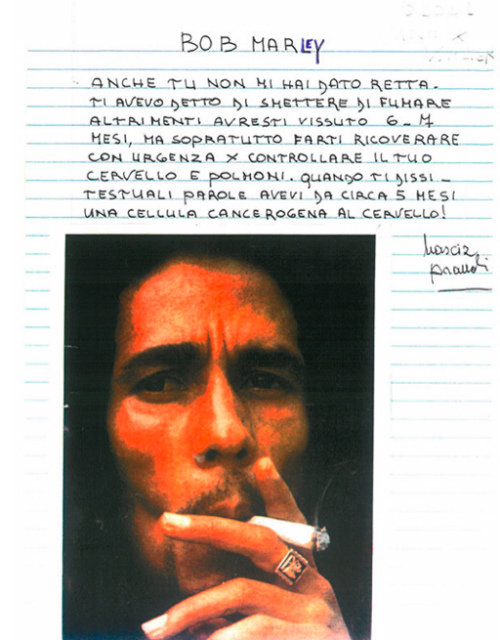 BOB MARLEY
ANCHE TU NON MI HAI DATO RETTA.
TI AVEVO DETTO DI SMETTERE DI FUMARE
ALTRIMENTI AVRESTI VISSUTO 6-7
MESI, MA SOPRATUTTO FARTI RICOVERARE
CON URGENZA X CONTROLLARE IL TUO
CERVELLO E POLMONI. QUANDO TI DISSI -
TESTUALI PAROLE AVEVI DA CIRCA 5 MESI
UNA CELLULA CANCEROGENA AL CERVELLO!